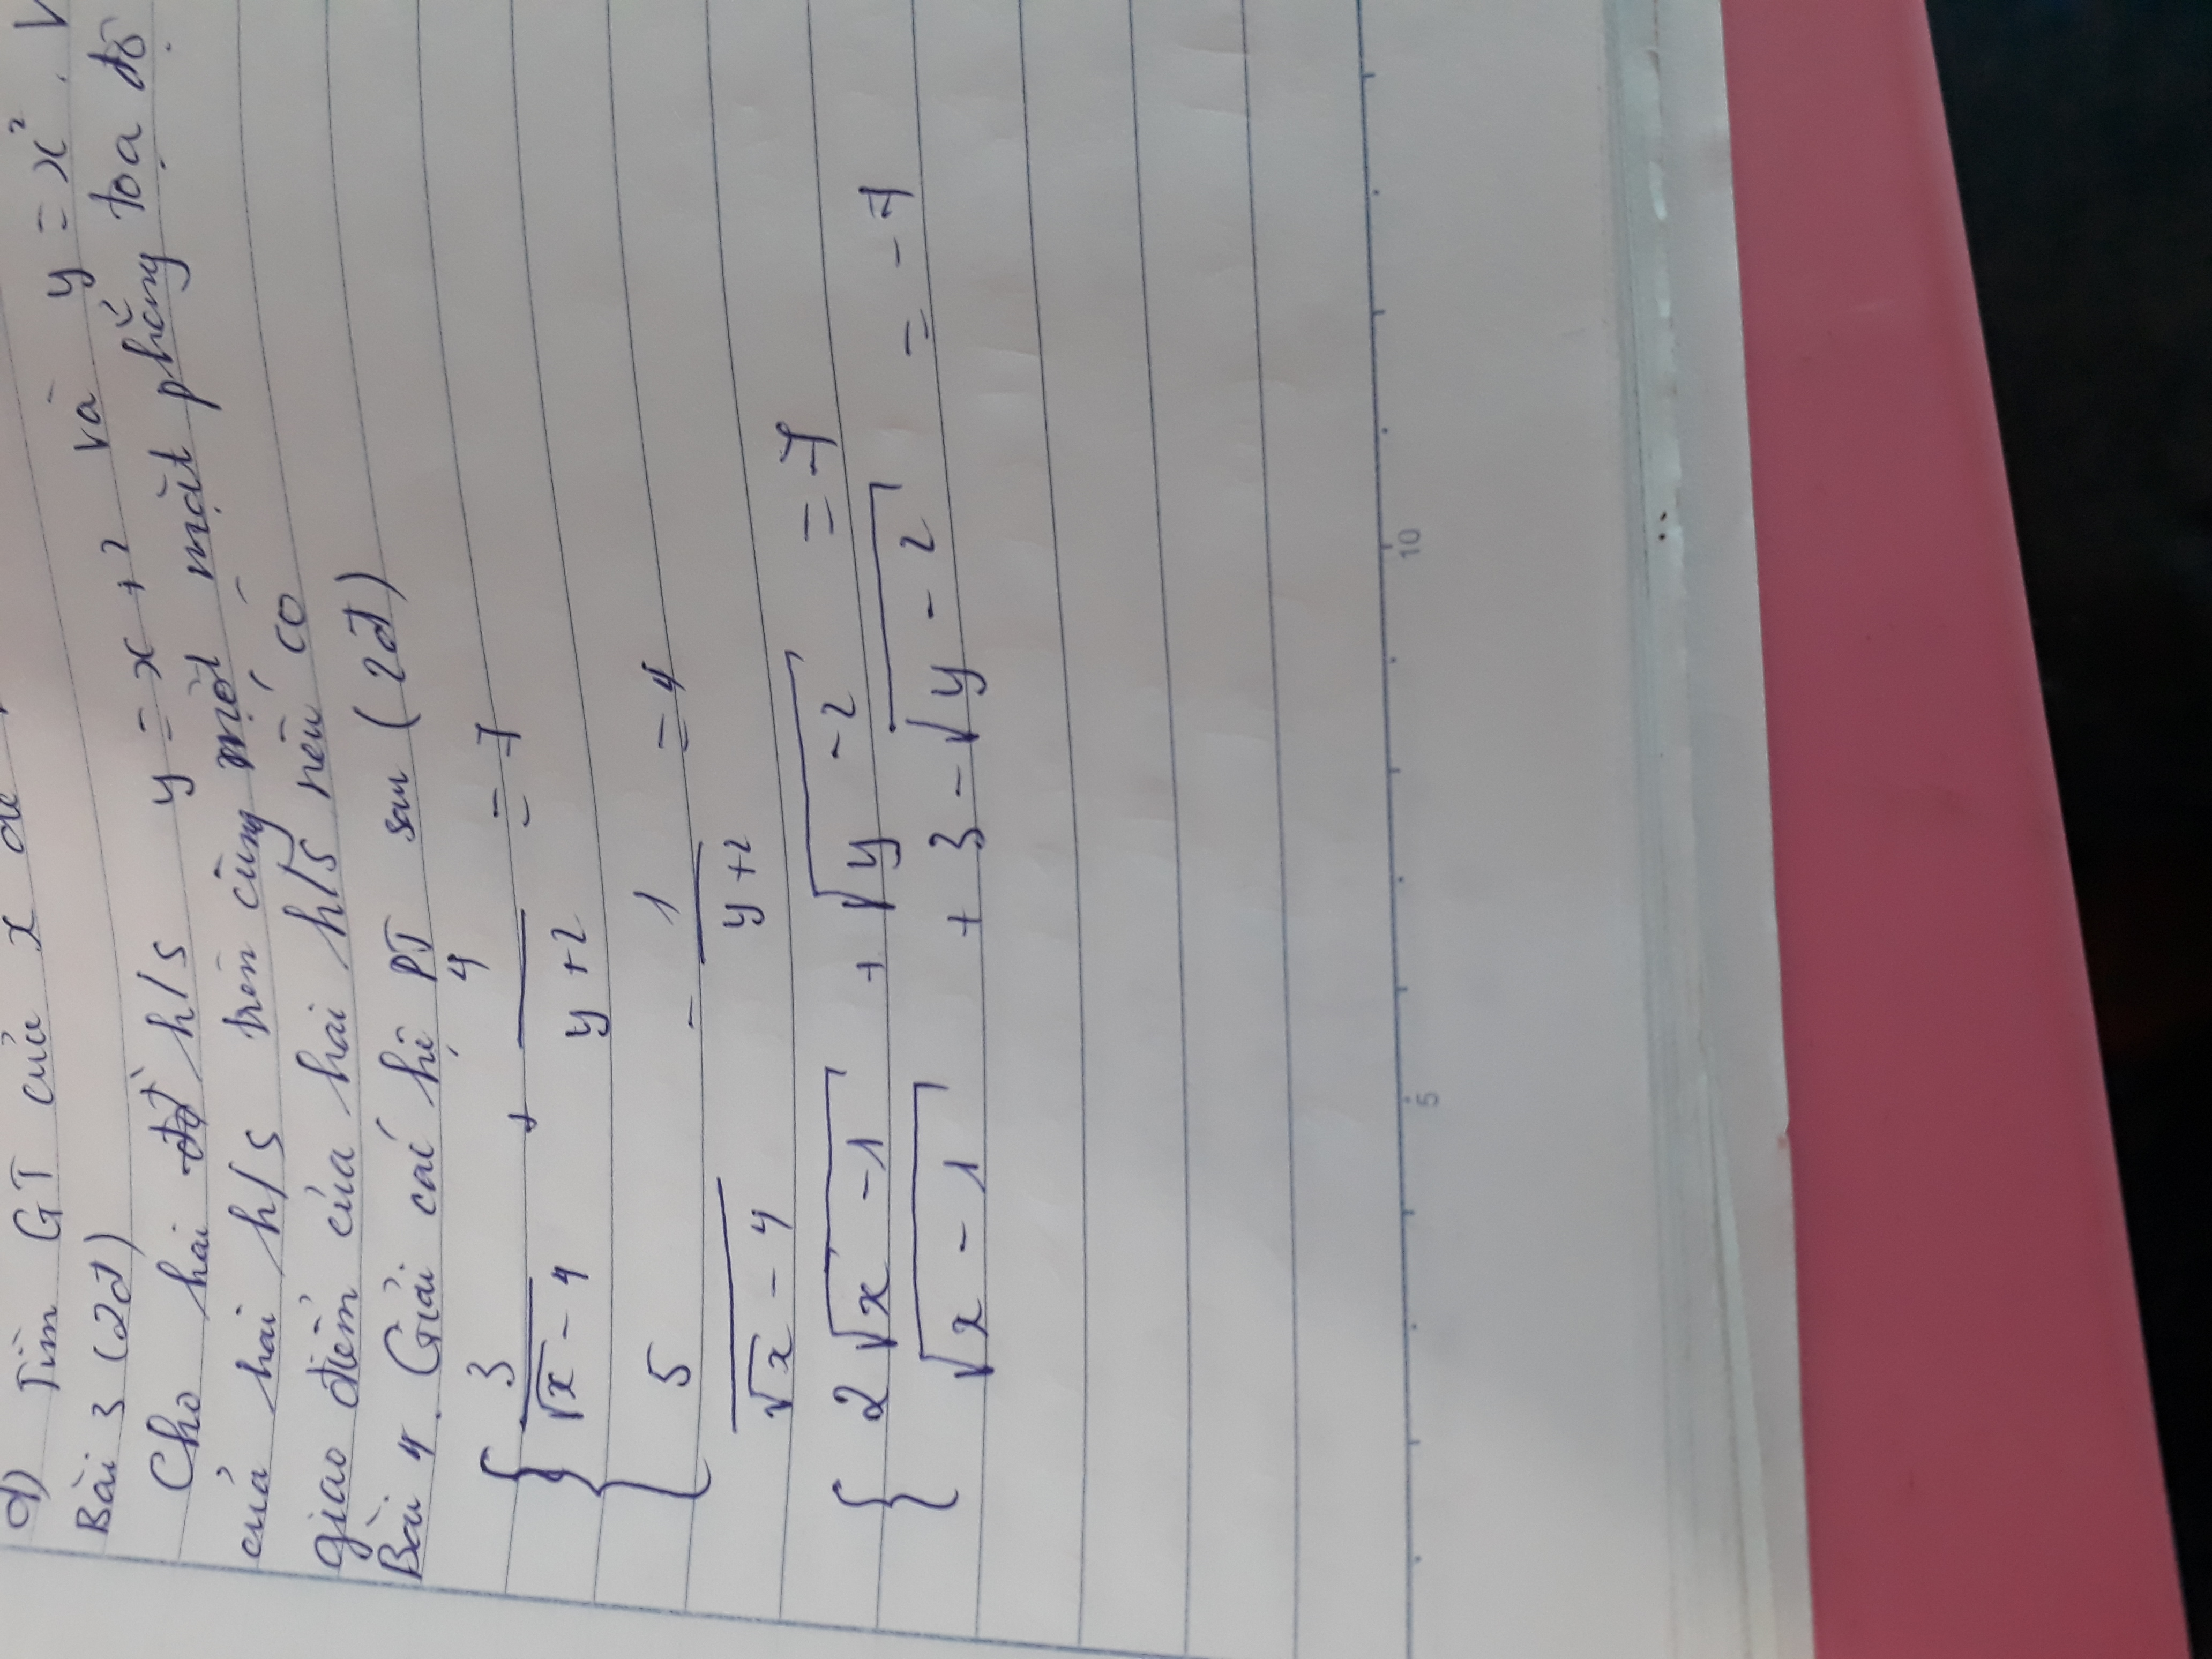 d) Tìm GT của x để
Bài 3 (2đ)
Cho hai h/s y = x + 2 và y = x². V
của hai h/s trên cùng một mặt phẳng tọa độ
giao điểm của hai h/s nếu có
Bài 4. Giải cái hệ PT sau (2đ)
{ 3/(√x - 4) + 4/(y + 2) = 7
5/(√x - 4) - 1/(y + 2) = 4
{ 2√(x - 1) + √(y - 2) = 7
√(x - 1) + 3 - √(y - 2) = -7
5 10